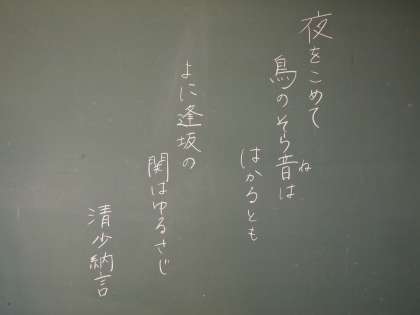 夜をこめて
鳥のそら音は
ね
はかるとも
よに逢坂の
関はゆるさじ
清少納言